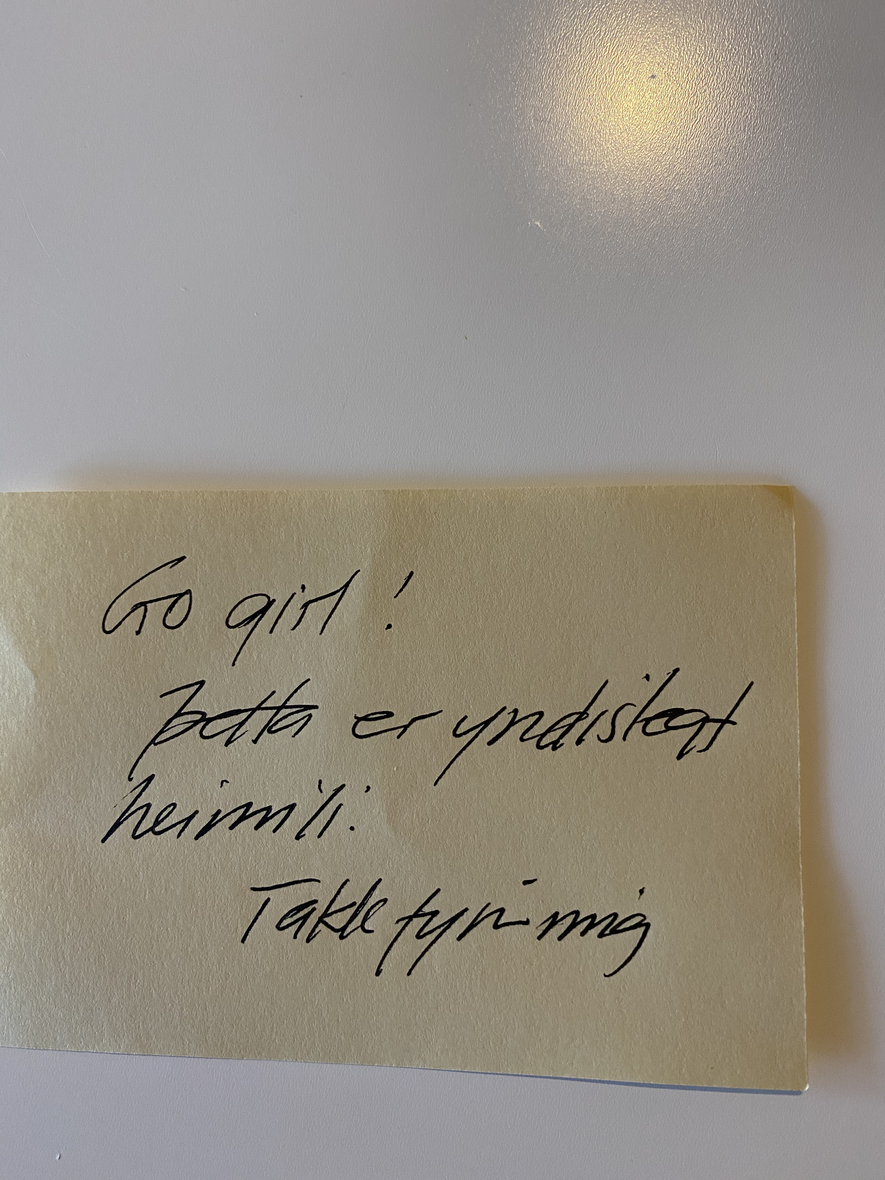 Go girl!
Þetta er yndislegt
heimili.
Takk fyrir mig